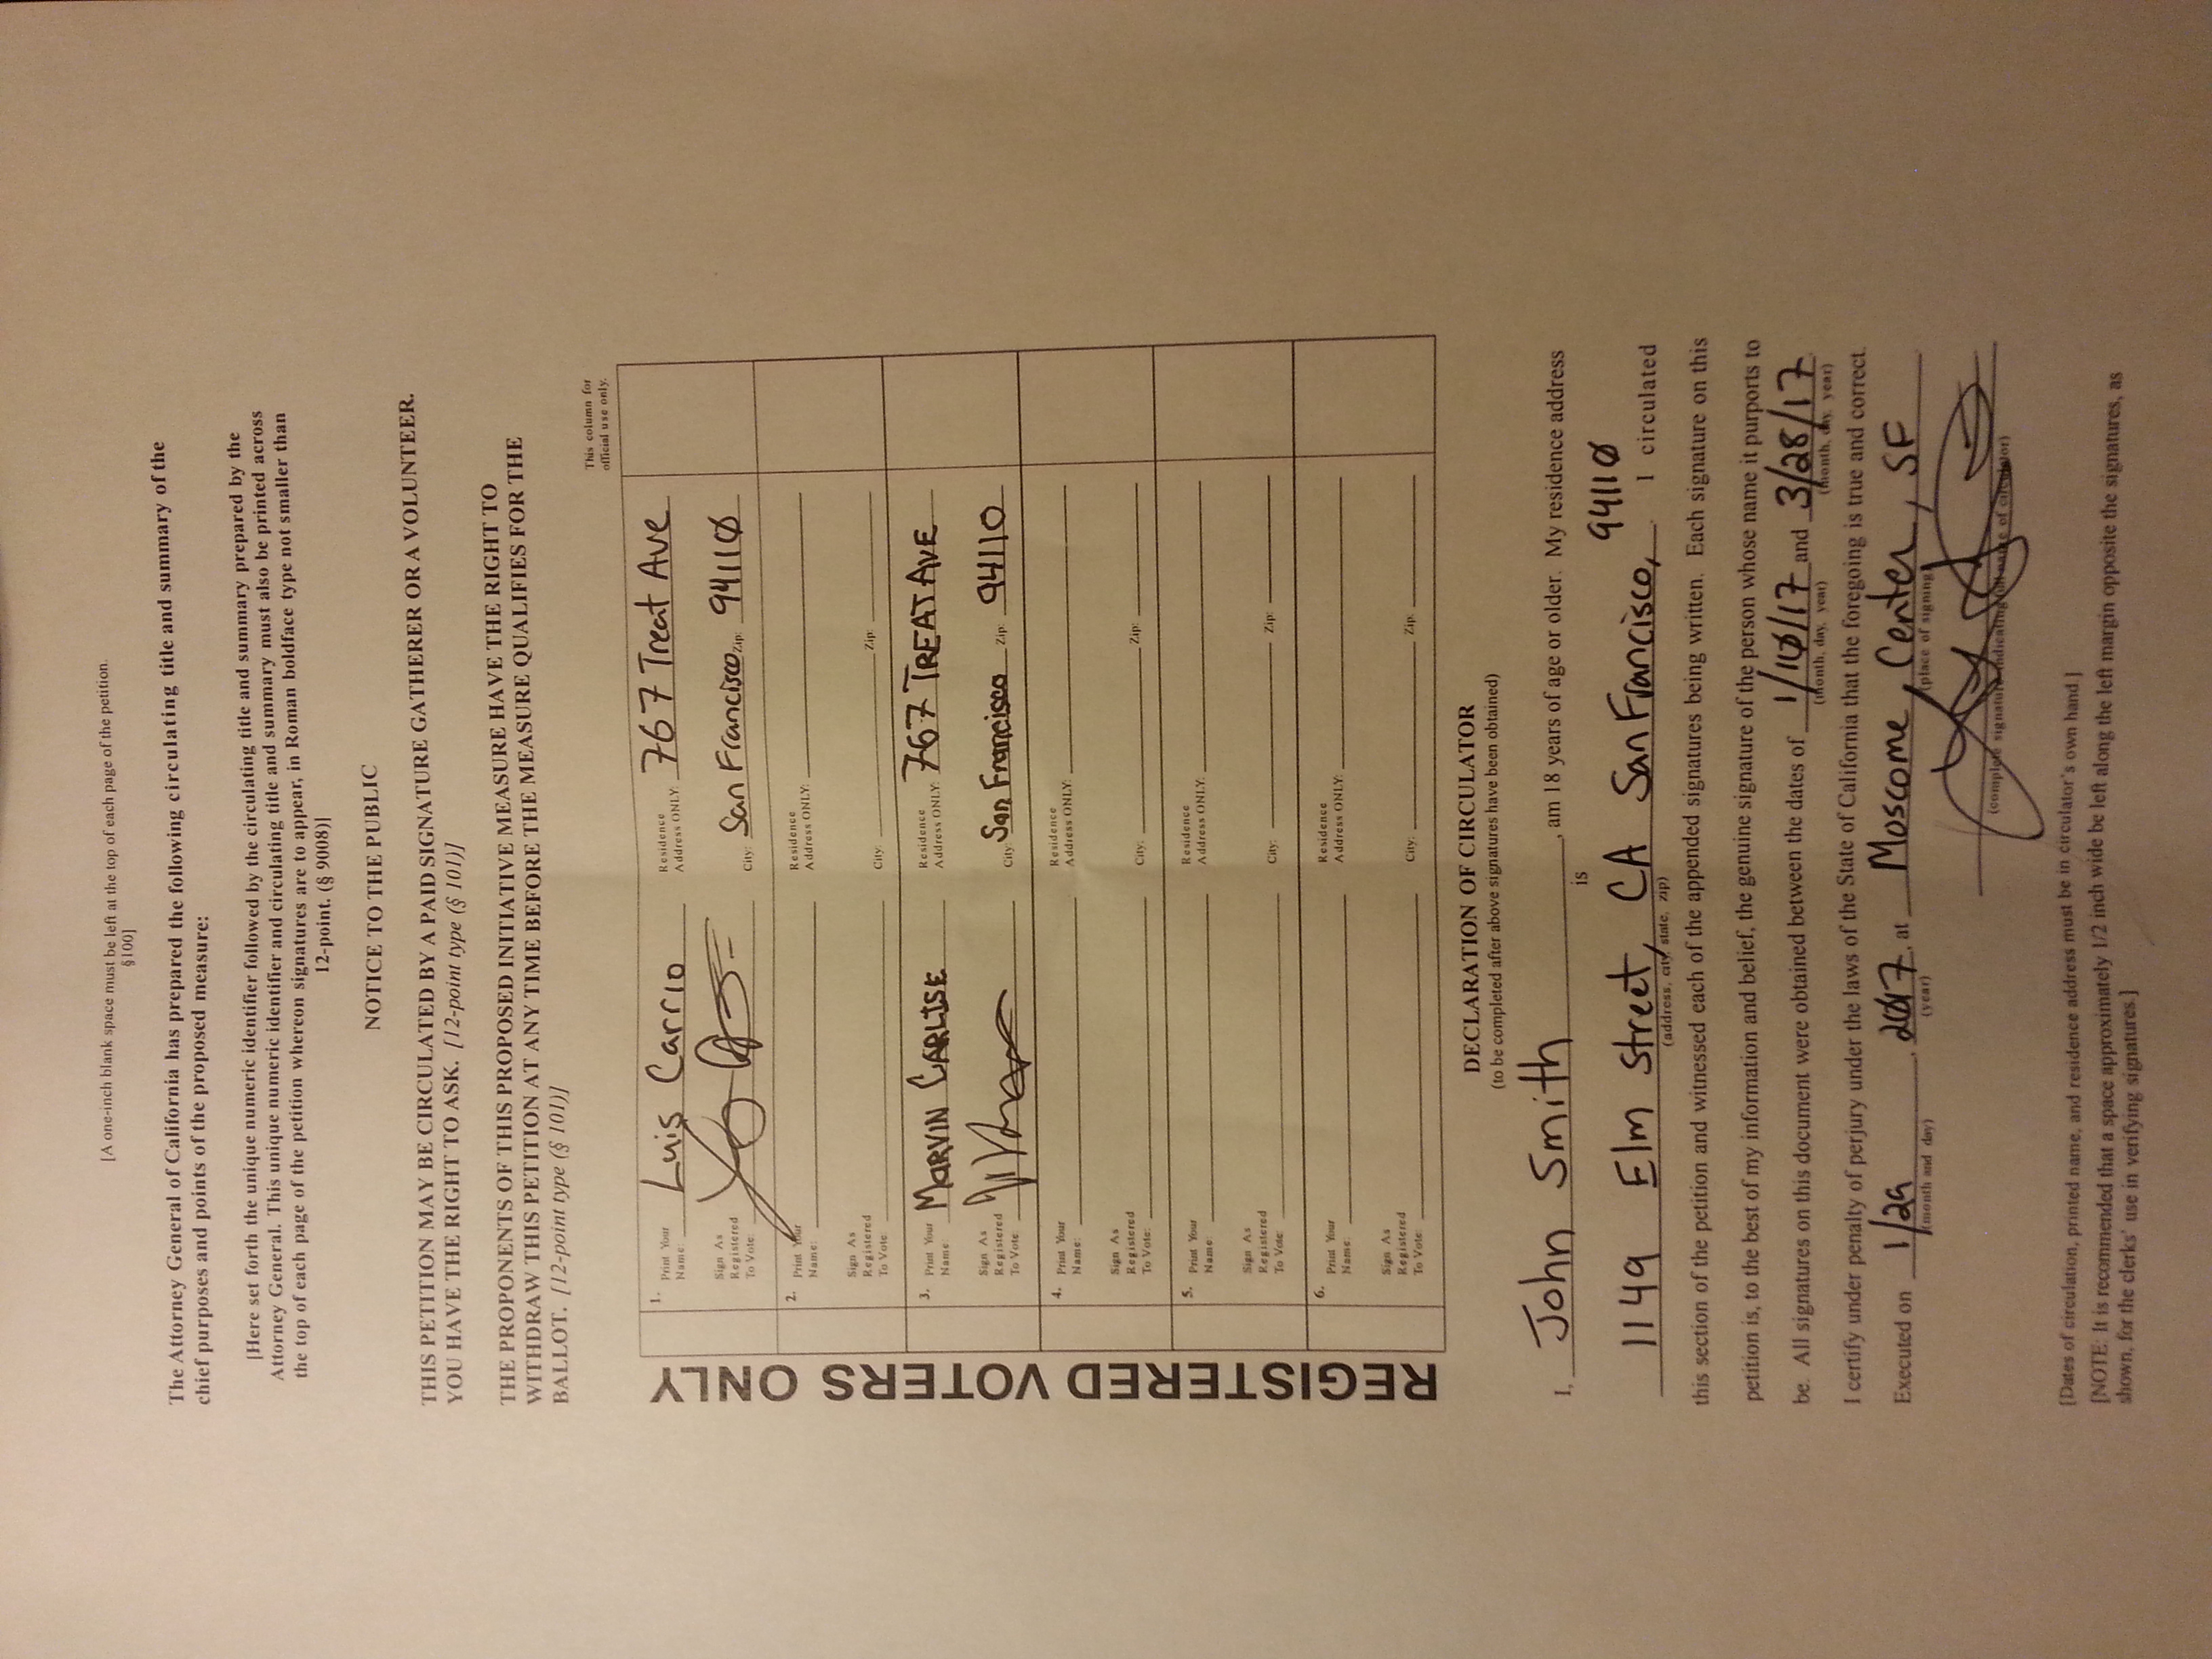 [A one-inch blank space must be left at the top of each page of the petition.
§100]
The Attorney General of California has prepared the following circulating title and summary of the
chief purposes and points of the proposed measure:
[Here set forth the unique numeric identifier followed by the circulating title and summary prepared by the
Attorney General. This unique numeric identifier and circulating title and summary must also be printed across
the top of each page of the petition whereon signatures are to appear, in Roman boldface type not smaller than
12-point. (§ 9008)]
NOTICE TO THE PUBLIC
THIS PETITION MAY BE CIRCULATED BY A PAID SIGNATURE GATHERER OR A VOLUNTEER.
YOU HAVE THE RIGHT TO ASK. [12-point type (§ 101)]
THE PROPONENTS OF THIS PROPOSED INITIATIVE MEASURE HAVE THE RIGHT TO
WITHDRAW THIS PETITION AT ANY TIME BEFORE THE MEASURE QUALIFIES FOR THE
BALLOT. [12-point type (§ 101)]
This column for
official use only.
REGISTERED VOTERS ONLY
1. Print Your Name: Luis Carrio Residence Address ONLY: 767 Treat Ave
Sign As Registered To Vote: City: San Francisco Zip: 94110
2. Print Your Name: Residence Address ONLY:
Sign As Registered To Vote: City: Zip:
3. Print Your Name MARVIN CARLISE Residence Address ONLY: 767 TREAT AVE
Sign As Registered To Vote: City: San Francisco Zip: 94110
4. Print Your Name: Residence Address ONLY:
Sign As Registered To Vote: City: Zip:
5. Print Your Name: Residence Address ONLY:
Sign As Registered To Vote: City: Zip:
6. Print Your Name: Residence Address ONLY:
Sign As Registered To Vote: City: Zip:
DECLARATION OF CIRCULATOR
(to be completed after above signatures have been obtained)
I, John Smith, am 18 years of age or older. My residence address
is
1149 Elm Street, CA San Francisco, 94110. I circulated
(address, city, state, zip)
this section of the petition and witnessed each of the appended signatures being written. Each signature on this
petition is, to the best of my information and belief, the genuine signature of the person whose name it purports to
be. All signatures on this document were obtained between the dates of 1/10/17 and 3/28/17.
(month, day, year) (month, day, year)
I certify under penalty of perjury under the laws of the State of California that the foregoing is true and correct.
Executed on 1/29, 2017, at Moscome Center, SF
(month and day) (year) (place of signing)
(complete signature indicating full name of circulator)
[Dates of circulation, printed name, and residence address must be in circulator's own hand.]
[NOTE: It is recommended that a space approximately 1/2 inch wide be left along the left margin opposite the signatures, as
shown, for the clerks' use in verifying signatures.]